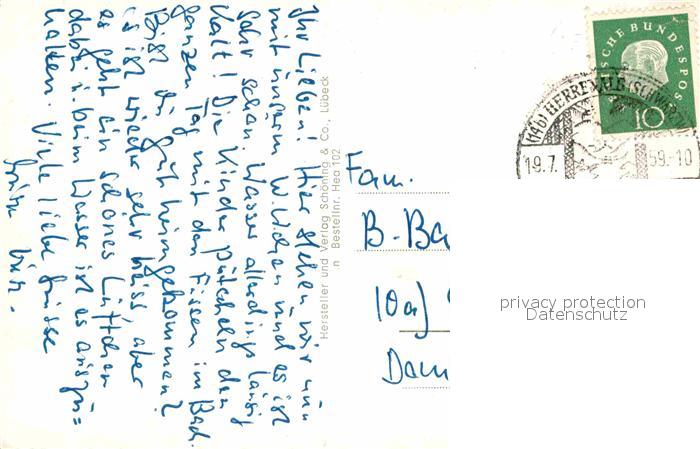 Ihr Lieben! Hier stehen wir nun
mit unserm W.Wagen und es ist
sehr schön. Wasser allerdings lausig
kalt! Die Kinder pütscheln den
ganzen Tag mit den Füssen im Bach.
Bist Du gut heimgekommen?
Es ist wieder sehr heiss aber
es geht ein schönes Lüftchen
dabei u. beim Wasser ist es auszu=
halten. Viele liebe Grüsse
Hersteller und Verlag Schöning & Co., Lübeck
Bestellnr. Hea 102
DEUTSCHE BUNDESPOST
10
(14b) HERRENALB (SCHWARZW
19.7. 59.-10
Fam.
B. Ba
10a)
Dam
privacy protection
Datenschutz